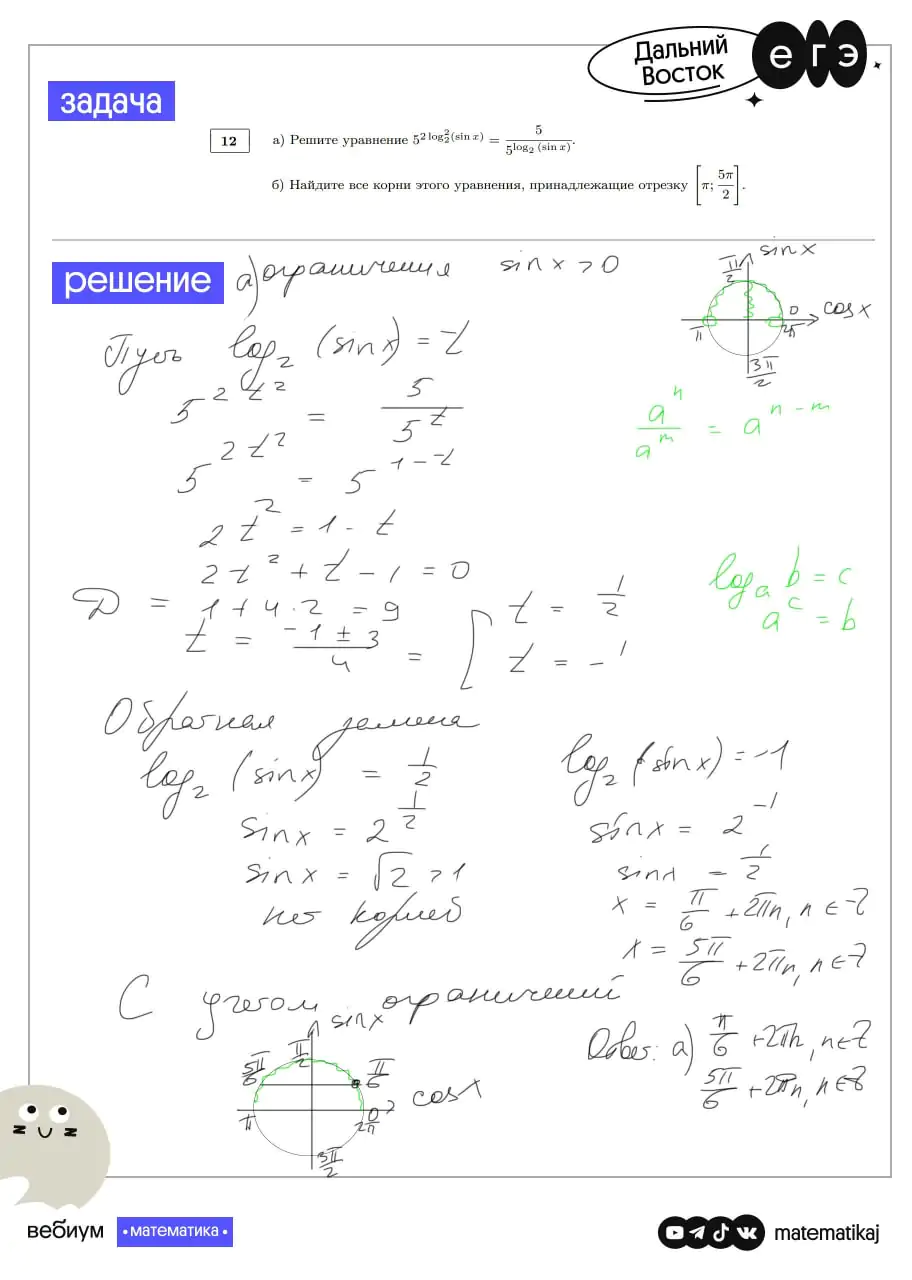 Дальний
Восток
егэ
задача
12
а) Решите уравнение 5^{2 log_2^2 (sin x)} = 5/5^{log_2 (sin x)}.
б) Найдите все корни этого уравнения, принадлежащие отрезку [π; 5π/2].
решение
а) ограничения sin x > 0
sin x
π/2
cos x
π
0
2π
3π/2
Пусть log_2 (sin x) = t
5^{2t^2} = 5/5^t
a^n/a^m = a^{n-m}
5^{2t^2} = 5^{1-t}
2t^2 = 1 - t
2t^2 + t - 1 = 0
log_a b = c
a^c = b
D = 1 + 4·2 = 9
t = (-1 ± 3)/4 = [ t = 1/2
t = -1
Обратная замена
log_2 (sin x) = 1/2
sin x = 2^{1/2}
sin x = √2 > 1
нет корней
log_2 (sin x) = -1
sin x = 2^{-1}
sin x = 1/2
x = π/6 + 2πn, n ∈ Z
x = 5π/6 + 2πn, n ∈ Z
С учетом ограничений
sin x
π/2
5π/6
π/6
cos x
π
0
2π
3π/2
Ответ: а) π/6 + 2πn, n ∈ Z
5π/6 + 2πn, n ∈ Z
вебиум
• математика •
matematikaj